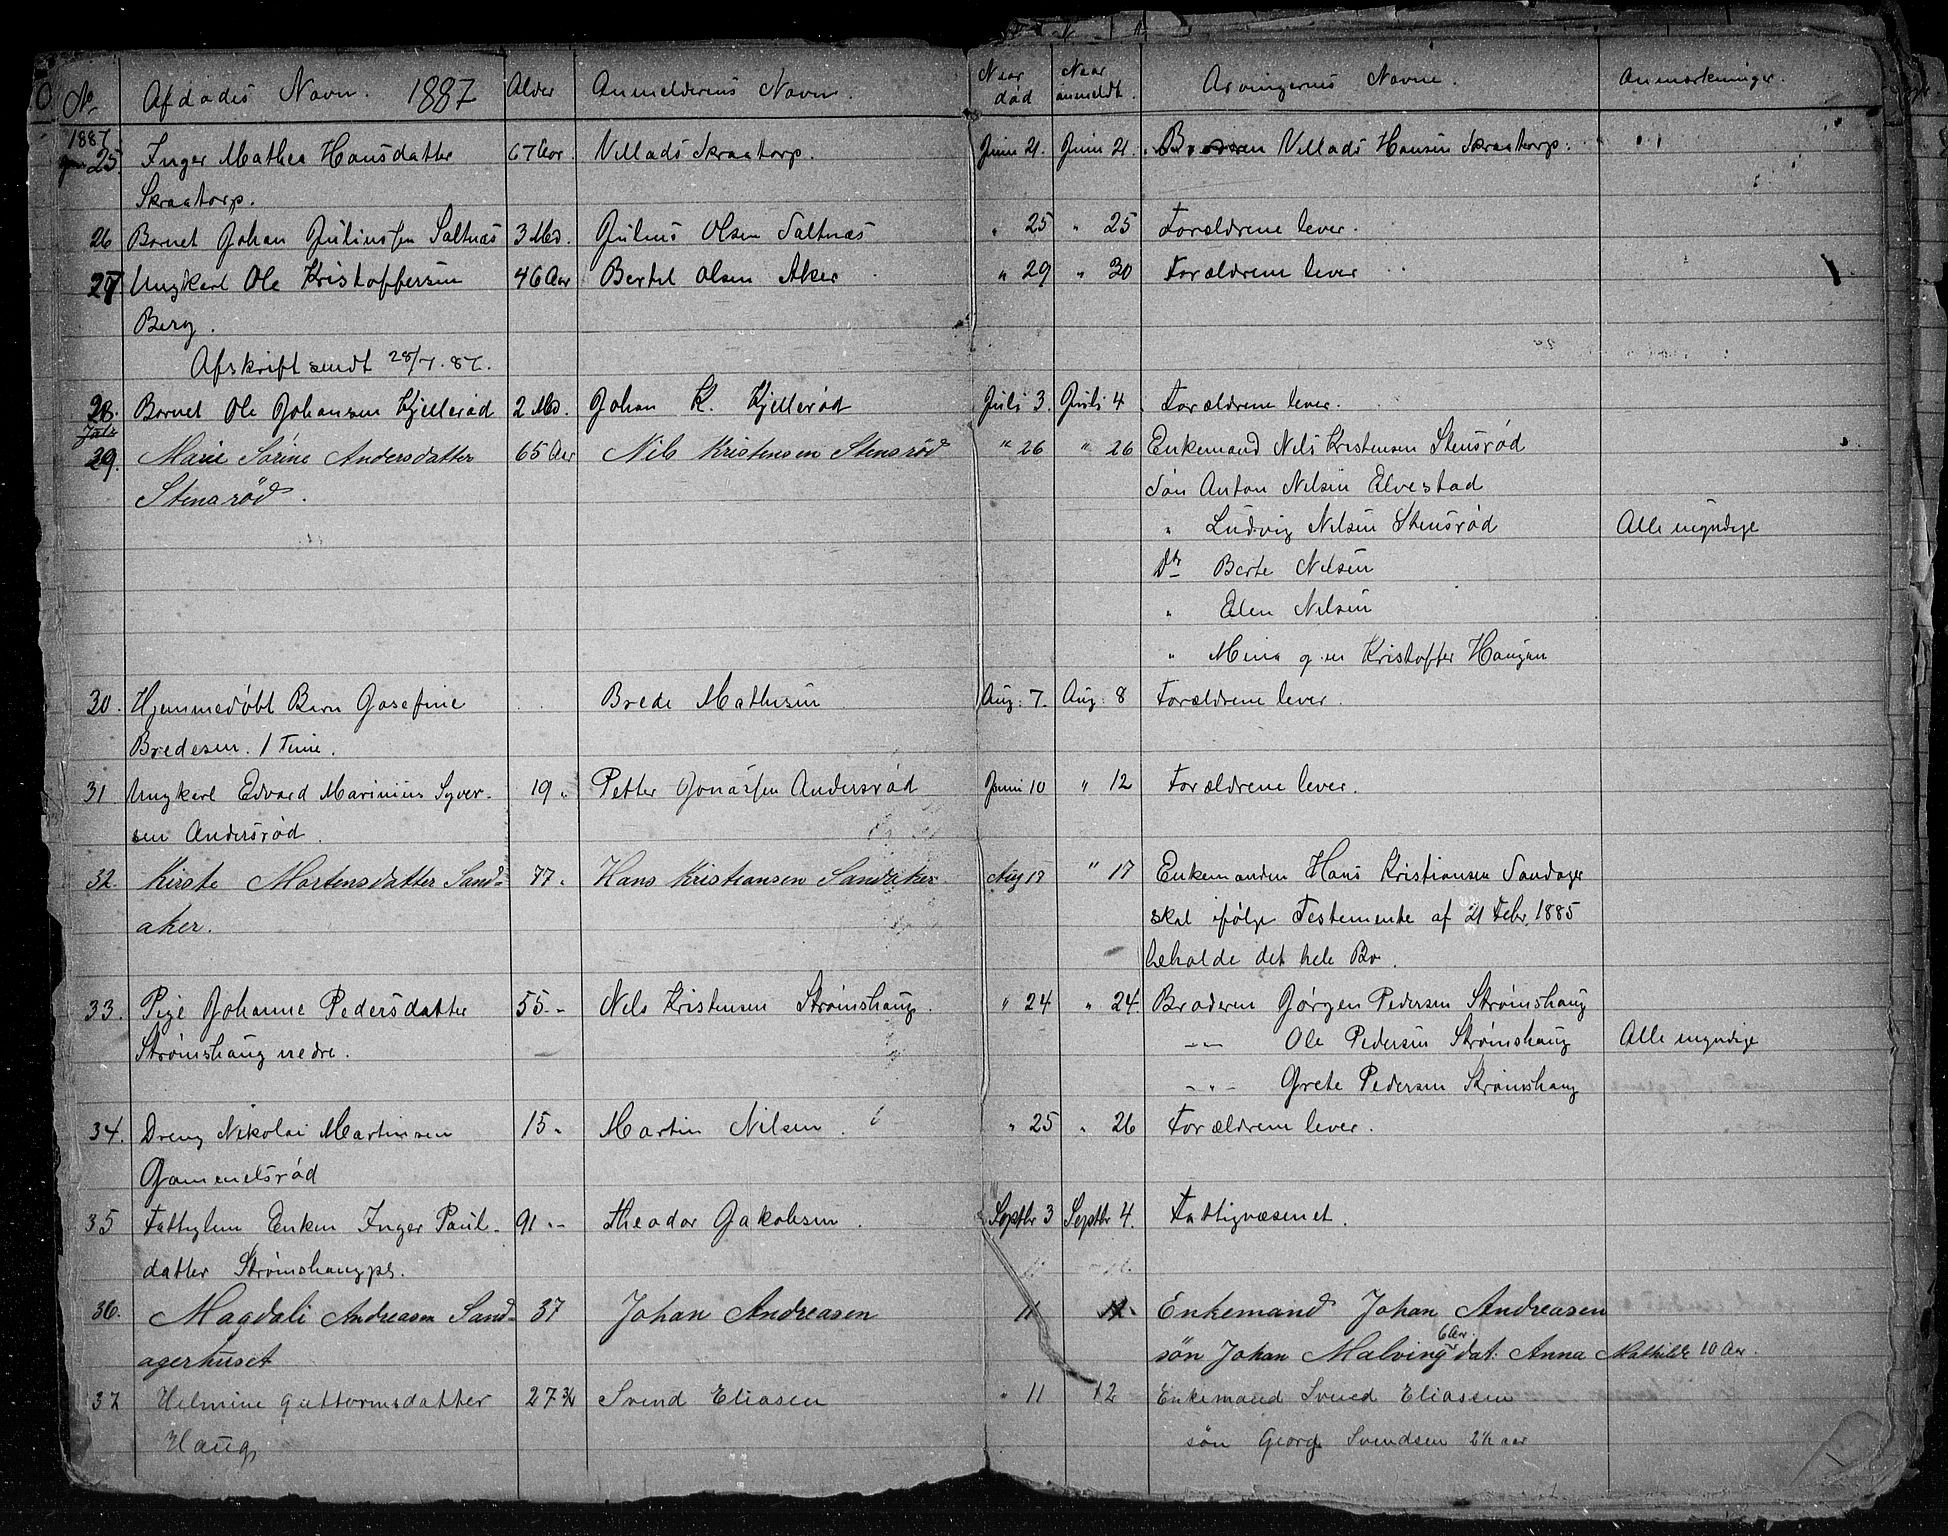 No Afdødes Navn. 1887 Alder Anmelderens Navn. Naar død Naar anmeldt. Arvingernes Navne. Anmærkninger.
1887
25. Inger Mathea Hansdatter 67 Aar. Villads Skraatorp. Juni 21. Juni 21. Broderen Villads Hansen Skraatorp.
Skraatorp.
26 Barnet Johan Juliussen Saltnæs 3 Md. Julius Olsen Saltnæs " 25 " 25 Forældrene lever.
27 Ungkarl Ole Kristoffersen 46 Aar Bertel Olsen Aker " 29 " 30 Forældrene lever
Berg.
Afskrift sendt 28/7. 87.
28. Barnet Ole Johansen Kjillerød 2 Md. Johan K. Kjillerød Juli 3. Juli 4 Forældrene lever.
Juli
29. Marie Sørine Andersdatter 65 Aar Nils Kristensen Stensrød " 26 " 26 Enkemand Nils Kristensen Stensrød
Stensrød. Søn Anton Nilsen Elvestad
" Ludvig Nilsen Stensrød Alle myndige
Dtr Berte Nilsen
" Elen Nilsen
" Mina g. m Kristoffer Haugen
30. Hjemmedøbt Barn Josefine Brede Mathisen Aug: 7. Aug: 8 Forældrene lever.
Bredesen. 1 Time.
31 Ungkarl Edvard Marinius Syver- 19 " Petter Jonassen Andersrød Juni 10 " 12 Forældrene lever.
sen Andersrød.
32. Kirste Mortensdatter Sand- 77 " Hans Kristiansen Sandaker. Aug 17 " 17 Enkemanden Hans Kristiansen Sandager
aker. skal ifølge Testemente af 21 Febr. 1885
beholde det hele Bo.
33. Pige Johanne Pedersdatter 55 - Nils Kristensen Strømshaug. " 24 " 24. Broderen Jørgen Pedersen Strømshaug
Strømshaug nedre. -"- Ole Pedersen Strømshaug Alle myndige
-"- Grete Pedersen Strømshaug
34. Dreng Nikolai Martinsen 15 " Martin Nilsen. " 25 " 26 Forældrene lever.
Gammelsrød
35 Fattiglem Enken Inger Paul- 91 - Theodor Jakobsen. Septbr 3 Septbr 4. Fattigvæsenet.
datter Strømshaugpl.
36. Magdali Andreasen Sand- 37 Johan Andreasen 11 11. Enkemand Johan Andreasen
6 Aar.
agerhuset søn Johan Malving dat. Anna Mathilde 10 Aar.
37 Helmine Guttormsdatter 27 3/4 Svend Eliasen " 11 12 Enkemand Svend Eliassen
Haug, søn Georg Svendsen 2½ aar